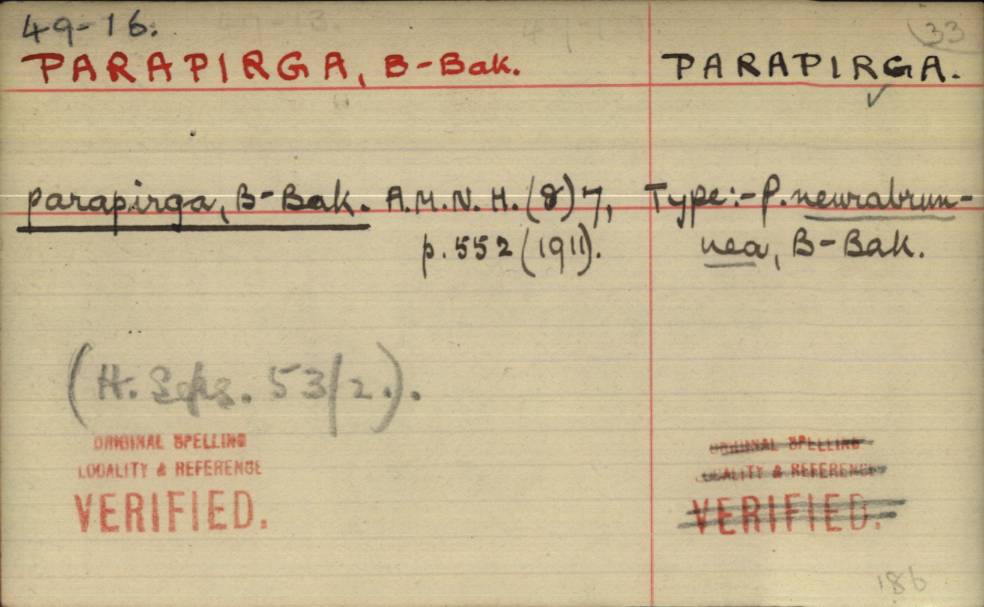 49-16.
33
PARAPIRGA, B-Bak.
PARAPIRGA.
parapirga, B-Bak. A.M.N.H. (8) 7,
p. 552 (1911).
Type:- P. neurabrun-
nea, B-Bak.
(H. Seps. 53/2.).
ORIGINAL SPELLING
LOCALITY & REFERENCE
VERIFIED.
ORIGINAL SPELLING
LOCALITY & REFERENCE
VERIFIED.
186